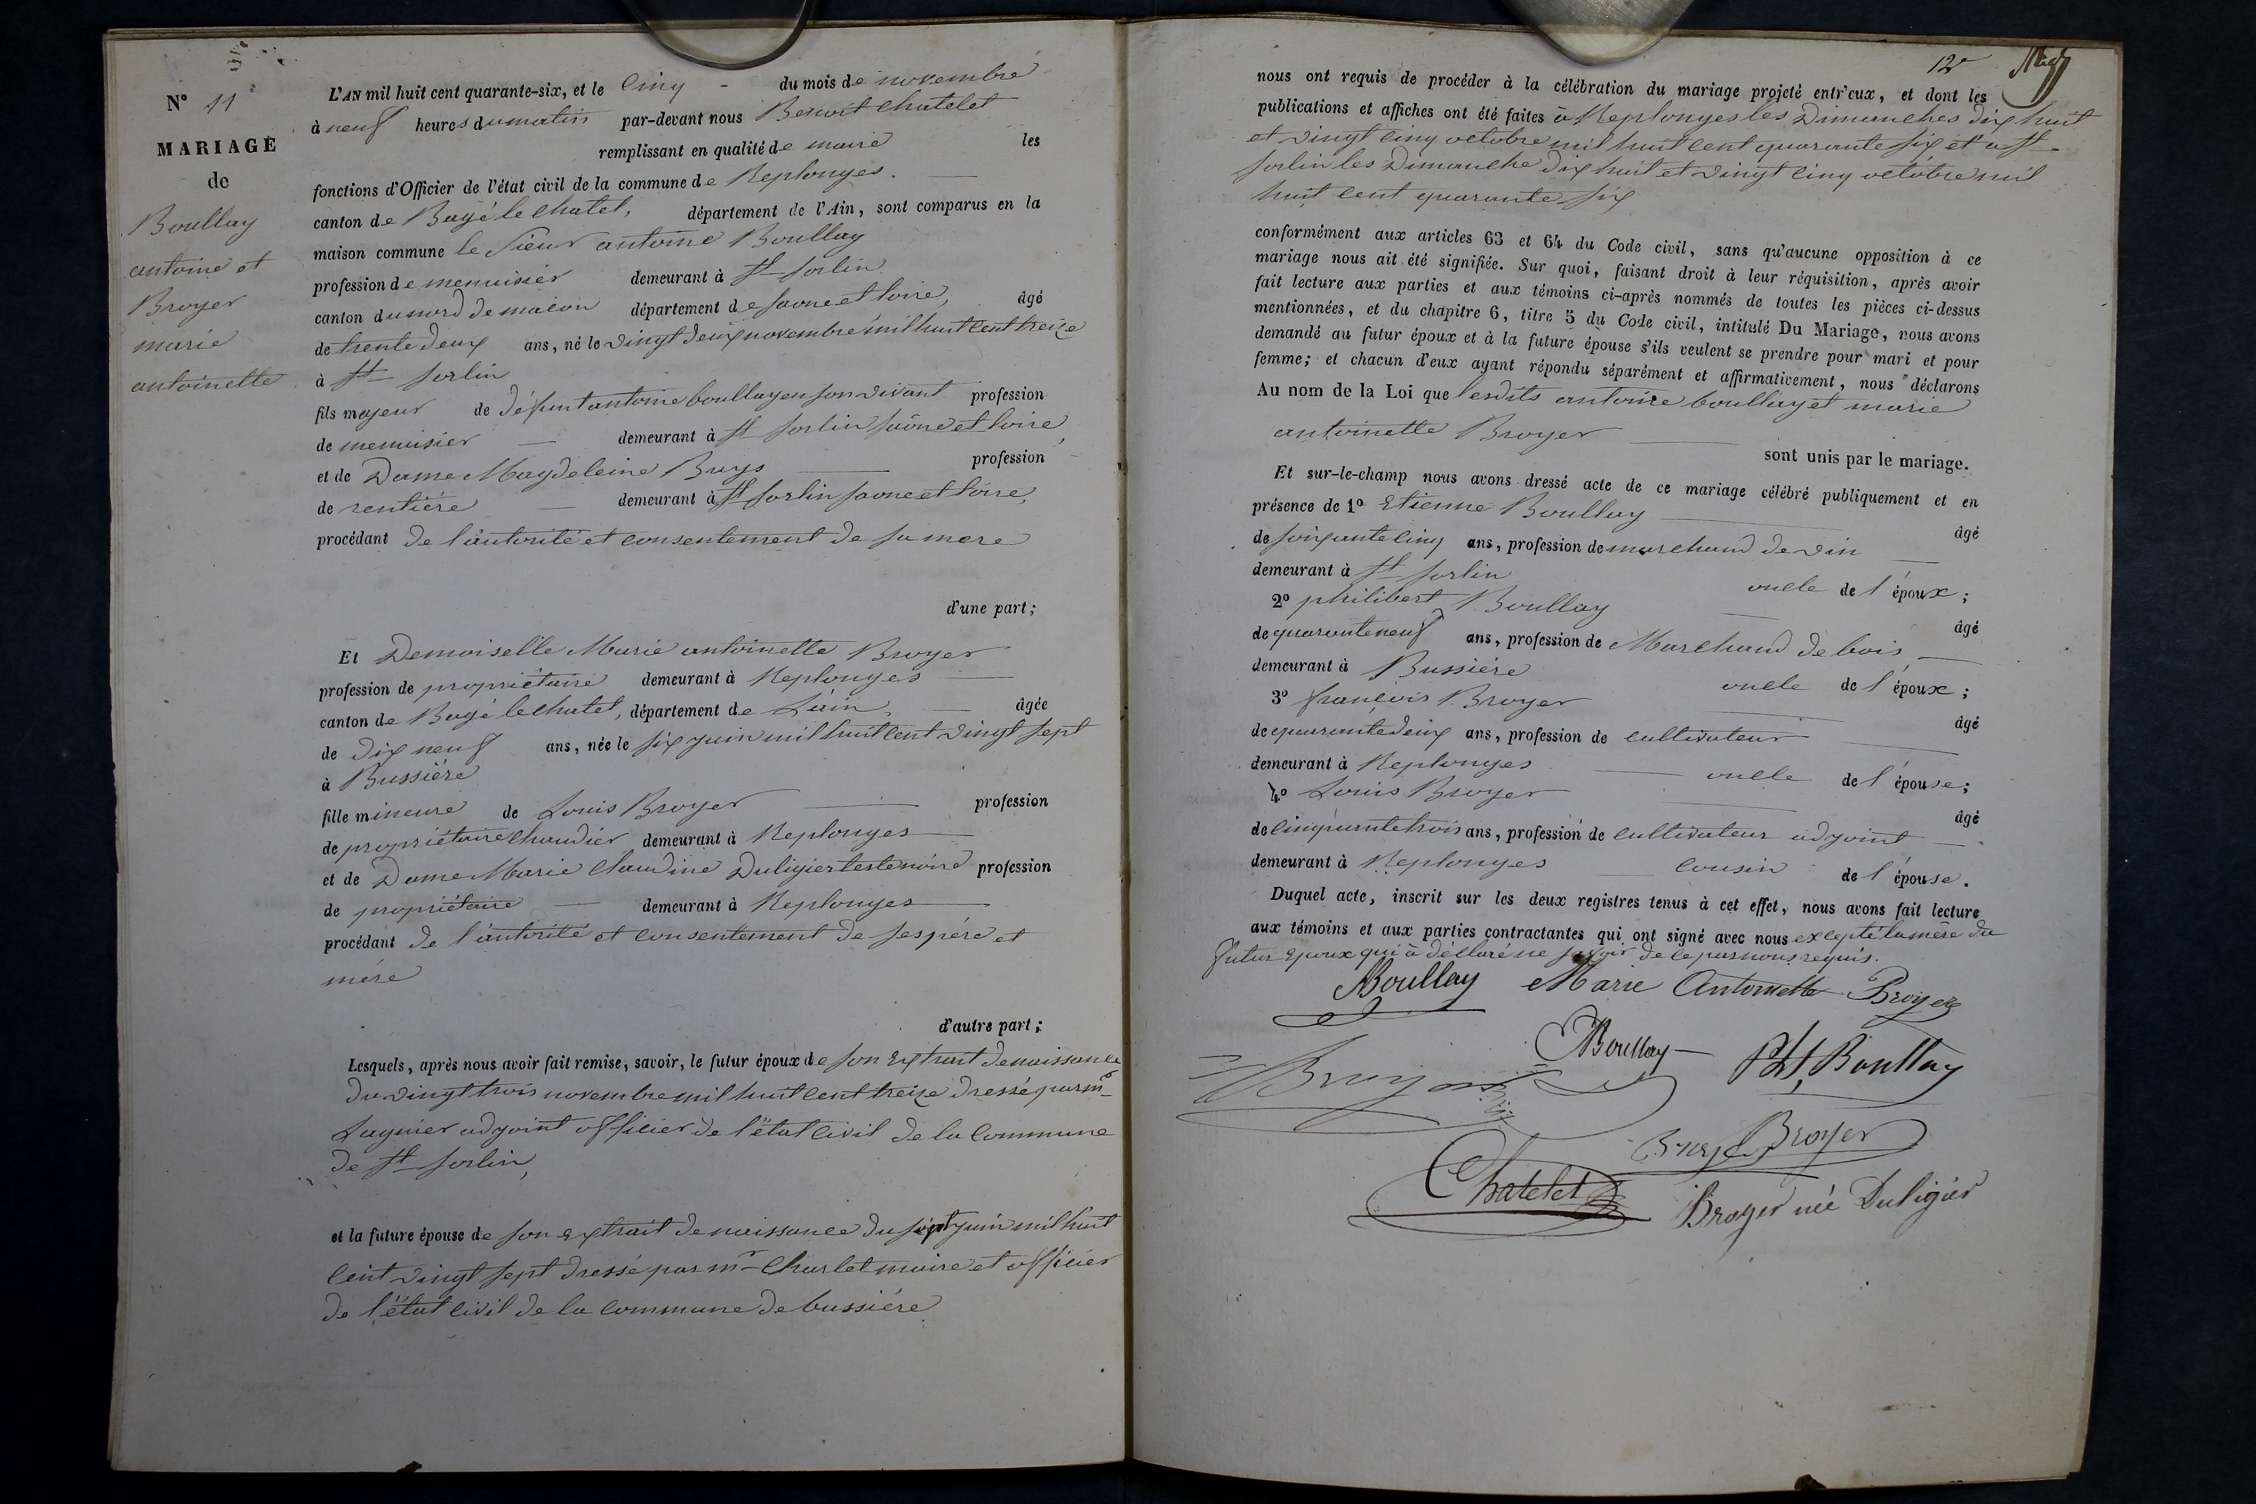 N° 11
MARIAGE
de
Boullay
antoine et
Broyer
marie
antoinette
L'AN mil huit cent quarante-six, et le cinq du mois de novembre
à neuf heures du matin par-devant nous Benoit Chatelet
remplissant en qualité de maire les
fonctions d'Officier de l'état civil de la commune de Replonges.
canton de Bagé le Chatel, département de l'Ain, sont comparus en la
maison commune le Sieur antoine Boullay
profession de menuisier demeurant à St Sorlin
canton du nord de macon département de Saone et Loire, âgé
de trente deux ans, né le vingt deux novembre mil huit cent treize
à St Sorlin
fils majeur de défunt antoine boullay en son vivant profession
de menuisier demeurant à St Sorlin Saône et Loire,
et de Dame Magdeleine Buys profession
de rentière demeurant à St Sorlin Saone et Loire,
procédant de l'autorité et consentement de sa mere
d'une part;
Et Demoiselle Marie antoinette Broyer
profession de propriétaire demeurant à Replonges
canton de Bagé le Chatel, département de L'ain, âgée
de dix neuf ans, née le six juin mil huit cent vingt sept
à Bussière
fille mineure de Louis Broyer profession
de propriétaire chaudier demeurant à Replonges
et de Dame Marie Claudine Duligier testenoire profession
de propriétaire demeurant à Replonges
procédant de l'autorité et consentement de ses père et
mère
d'autre part;
Lesquels, après nous avoir fait remise, savoir, le futur époux de son Extrait de naissance
du vingt trois novembre mil huit cent treize dressé par mr
Lagnier adjoint officier de l'état civil de la commune
de St Sorlin,
et la future épouse de son Extrait de naissance du sept juin mil huit
cent vingt sept dressé par mr Charlet maire et officier
de l'état civil de la commune de bussière
12
nous ont requis de procéder à la célébration du mariage projeté entr'eux, et dont les
publications et affiches ont été faites à Replonges les Dimanches dix huit
et vingt cinq octobre mil huit cent quarante six et a St
Sorlin les Dimanche dix huit et vingt cinq octobre mil
huit cent quarante six
conformément aux articles 63 et 64 du Code civil, sans qu'aucune opposition à ce
mariage nous ait été signifiée. Sur quoi, faisant droit à leur réquisition, après avoir
fait lecture aux parties et aux témoins ci-après nommés de toutes les pièces ci-dessus
mentionnées, et du chapitre 6, titre 5 du Code civil, intitulé Du Mariage, nous avons
demandé au futur époux et à la future épouse s'ils veulent se prendre pour mari et pour
femme; et chacun d'eux ayant répondu séparément et affirmativement, nous déclarons
Au nom de la Loi que lesdits antoine boullay et marie
antoinette Broyer
sont unis par le mariage.
Et sur-le-champ nous avons dressé acte de ce mariage célébré publiquement et en
présence de 1° Etienne Boullay âgé
de soixante cinq ans, profession de marchand de vin
demeurant à St Sorlin oncle de l'époux;
2° philibert Boullay âgé
de quarante neuf ans, profession de Marchand de bois
demeurant à Bussière oncle de l'époux;
3° françois Broyer âgé
de quarante deux ans, profession de cultivateur
demeurant à Replonges oncle de l'épouse;
4° Louis Broyer âgé
de cinquante trois ans, profession de cultivateur adjoint
demeurant à Replonges cousin de l'épouse.
Duquel acte, inscrit sur les deux registres tenus à cet effet, nous avons fait lecture
aux témoins et aux parties contractantes qui ont signé avec nous excepté la mère du
futur Epoux qui à déclaré ne savoir de ce par nous requis.
Boullay Marie Antoinette Broyer
Boullay Pht Boullay
Broyer
Broyer
Chatelet
Broyer née Duligier